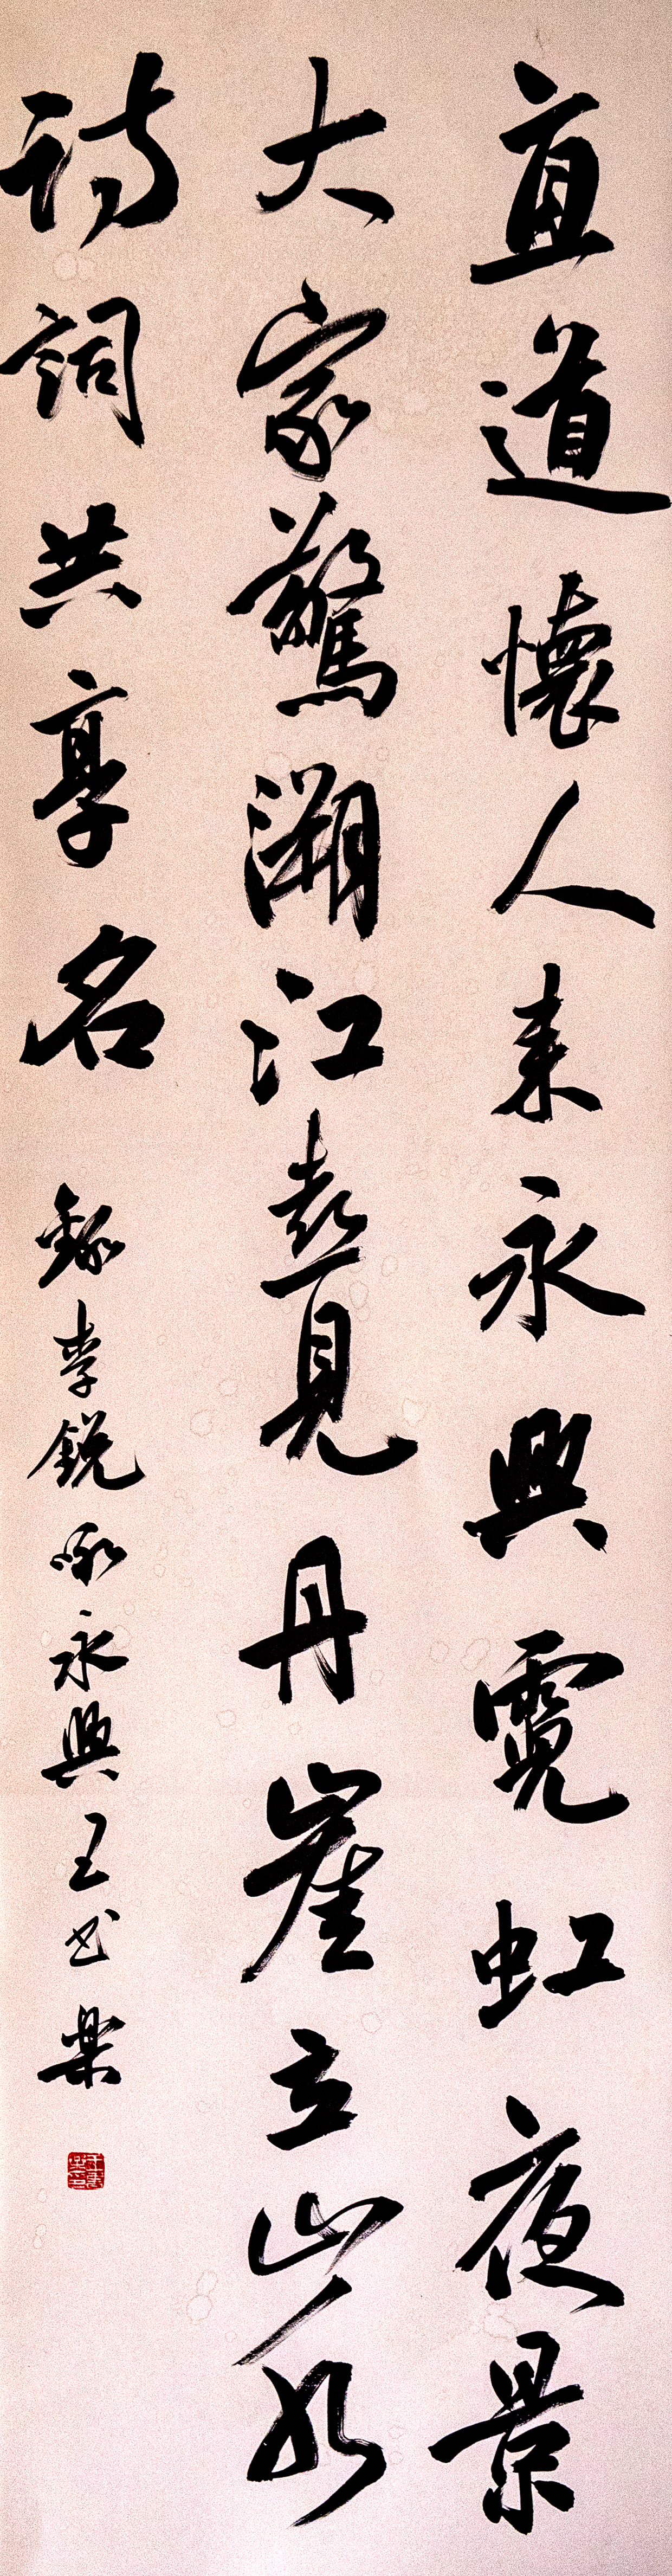 直道懷人来永興霓虹夜景
大家驚溯江喜見丹崖立山水
詩詞共享名
錄李銳咏永興王樂